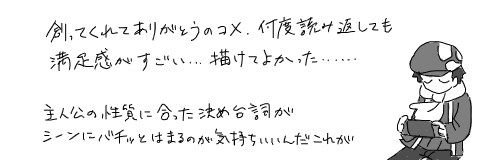 創ってくれてありがとうのコメ. 何度読み返しても
満足感がすごい… 描けてよかった……
主人公の性質に合った決め台詞が
シーンにバチッとはまるのが気持ちいいんだこれが